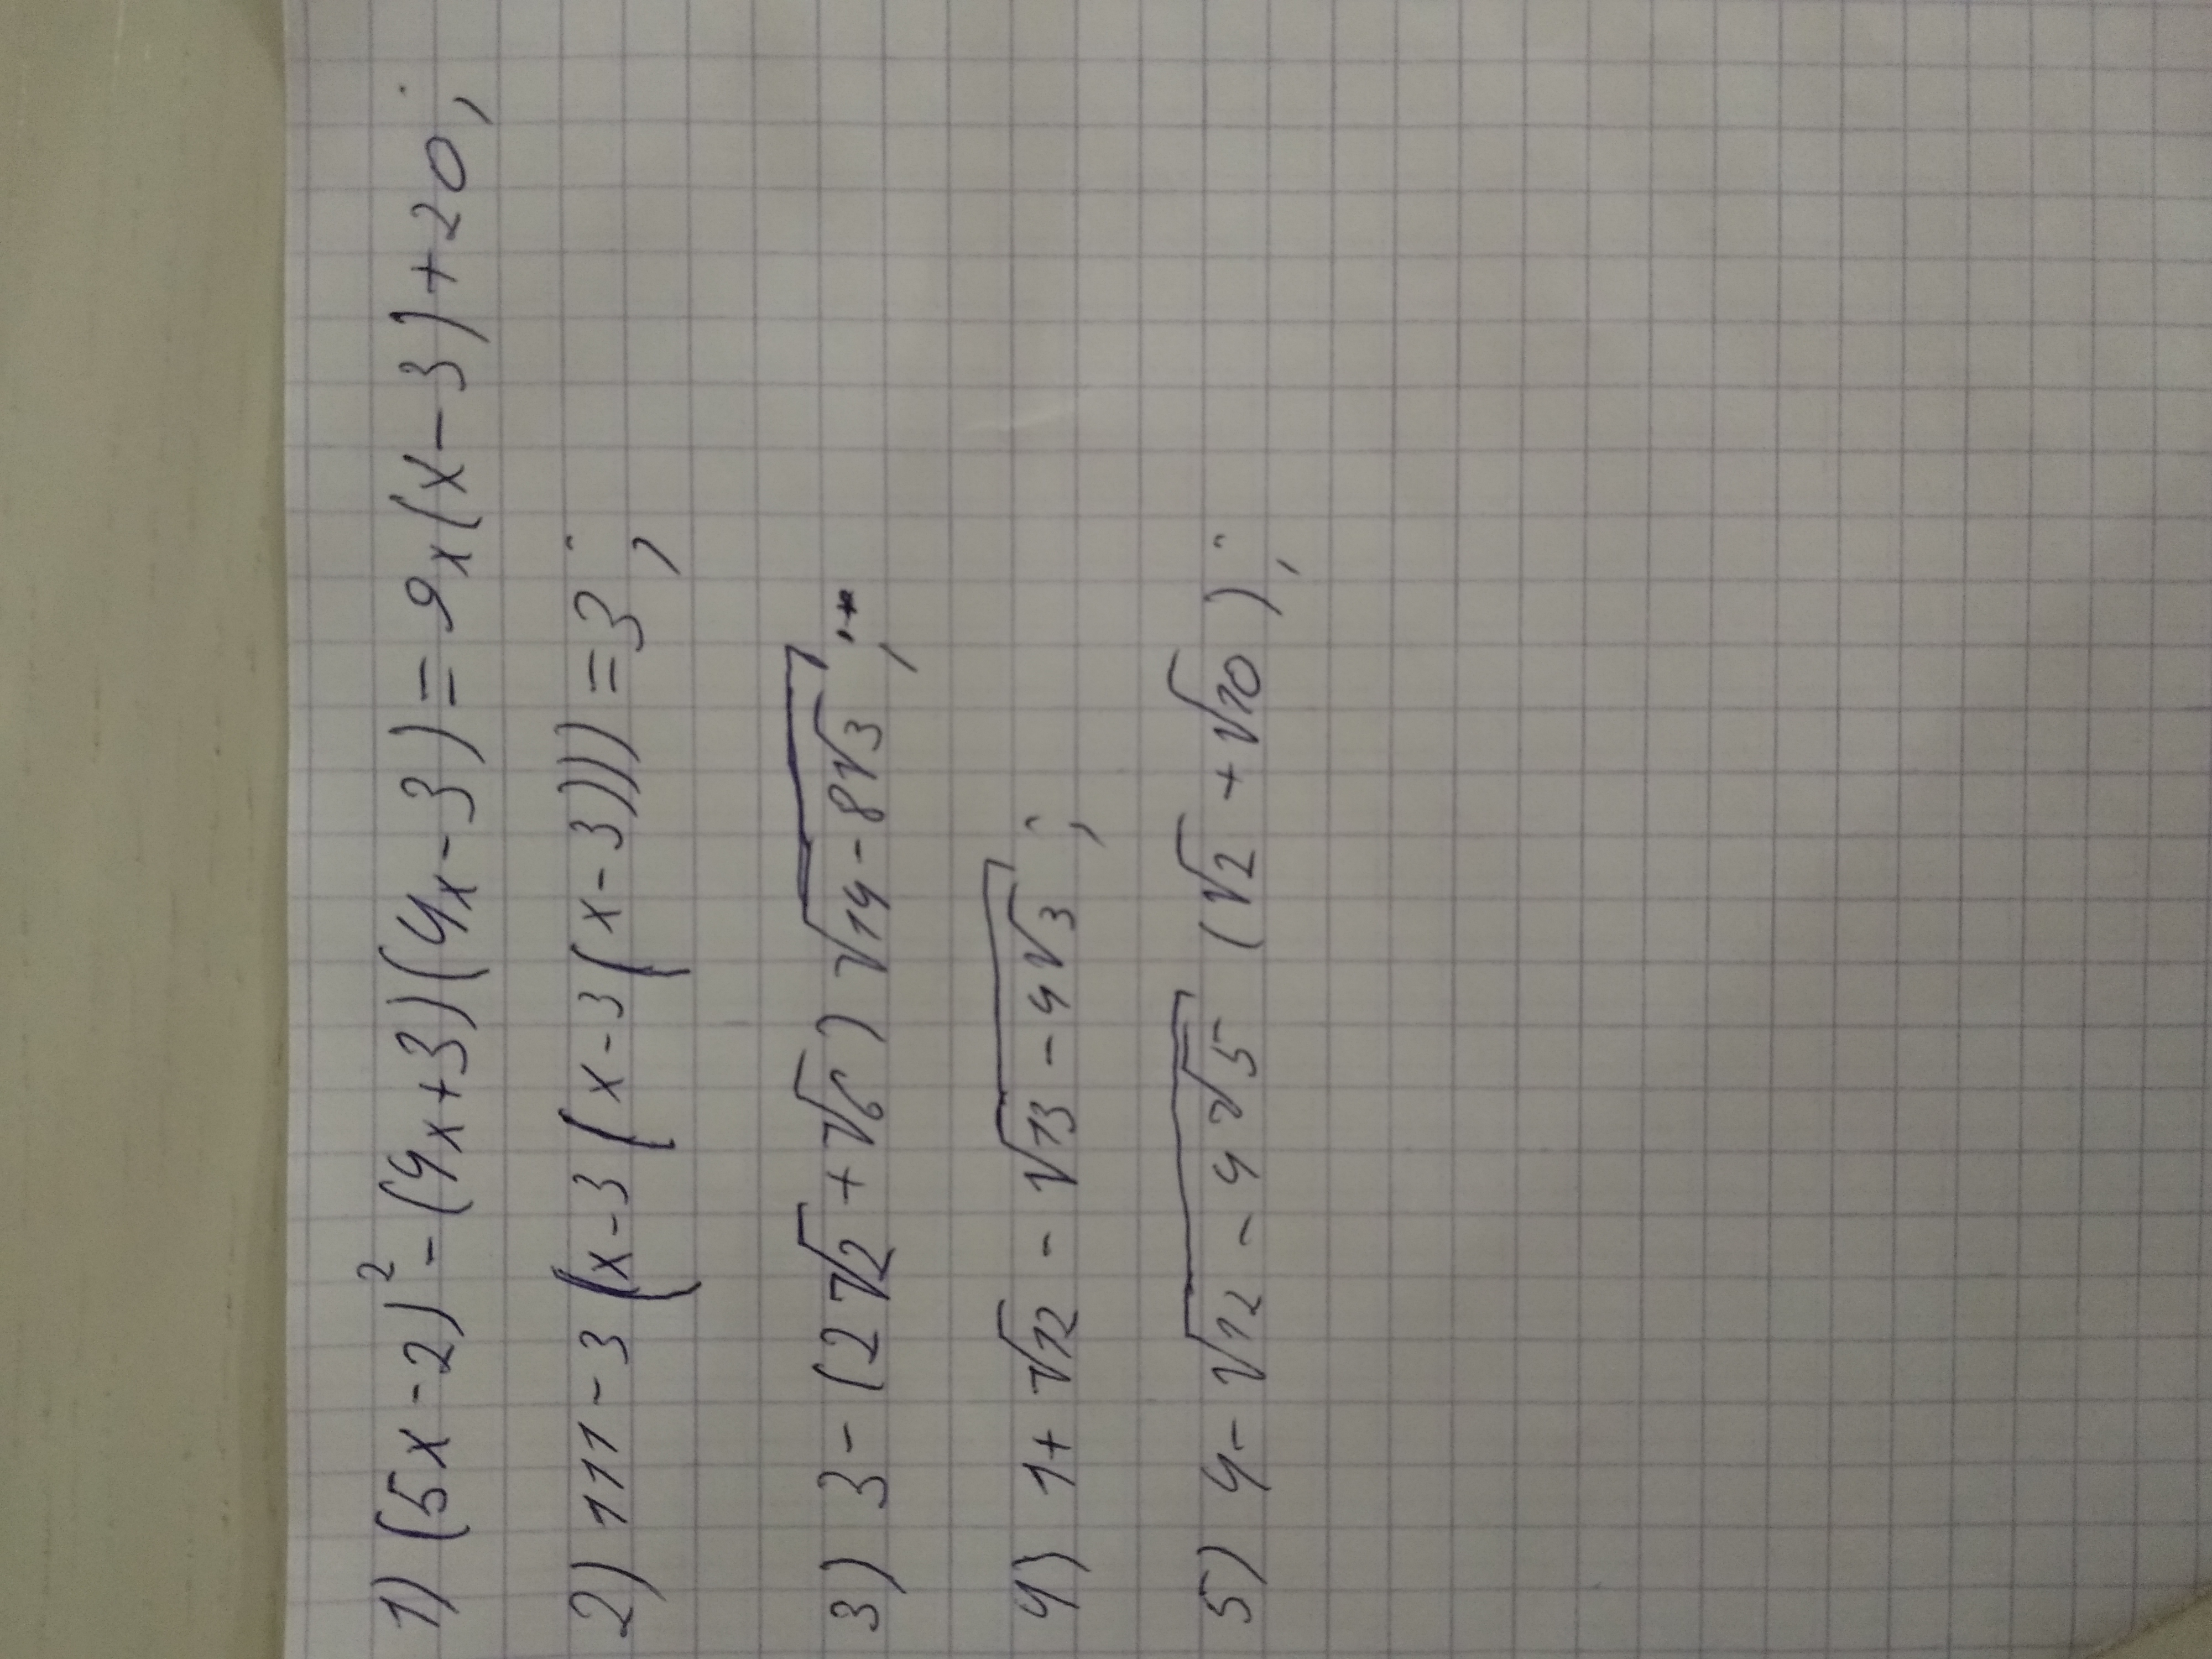 1) (5x-2)² - (4x+3)(4x-3) = 9x(x-3)+20;
2) 111-3(x-3(x-3(x-3))) = 3;
3) 3-(2√2+√6)√(14-8√3);
4) 1+√12-√(13-4√3);
5) 4-√(12-4√5) (√2+√10);